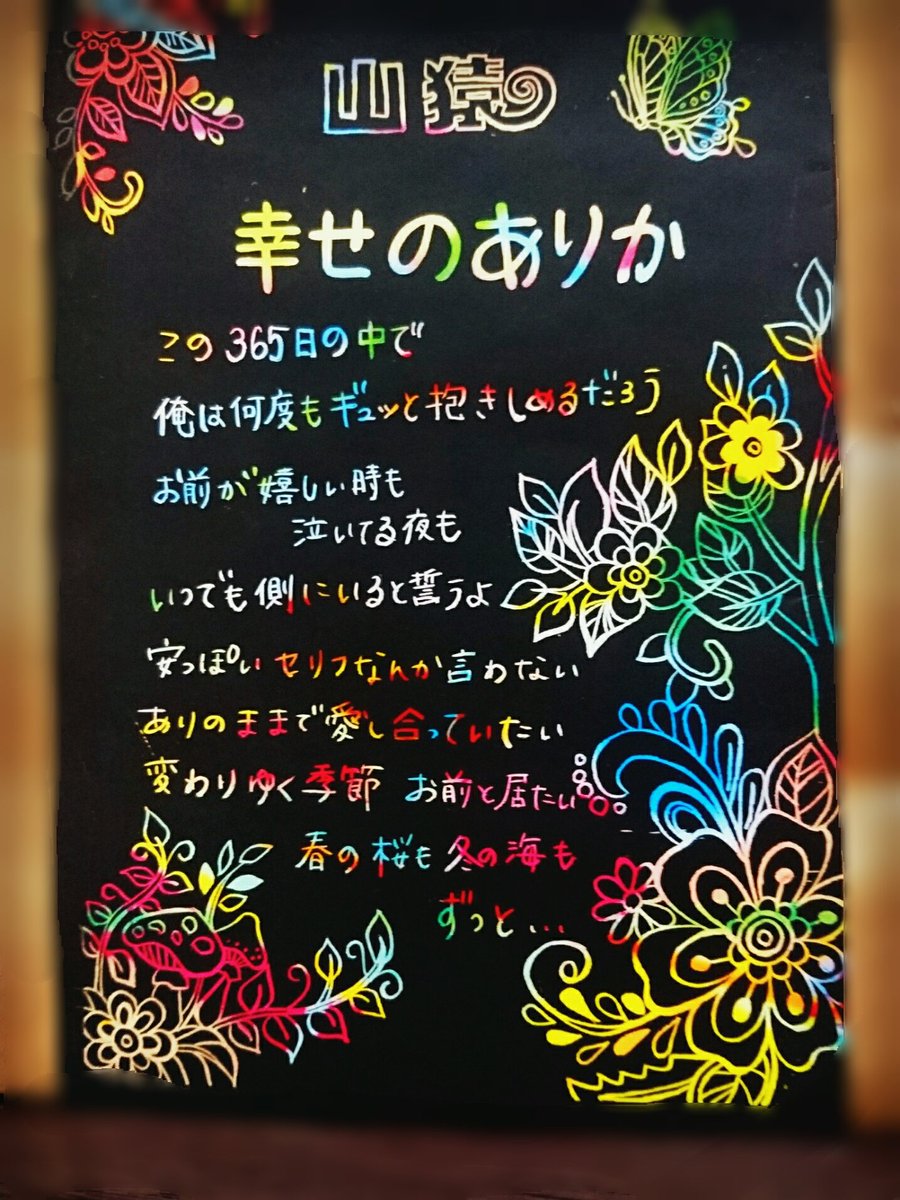 山猿
幸せのありか
この365日の中で
俺は何度もギュッと抱きしめるだろう
お前が嬉しい時も
泣いてる夜も
いつでも側にいると誓うよ
安っぽいセリフなんか言わない
ありのままで愛し合っていたい
変わりゆく季節 お前と居たい
春の桜も冬の海も
ずっと...